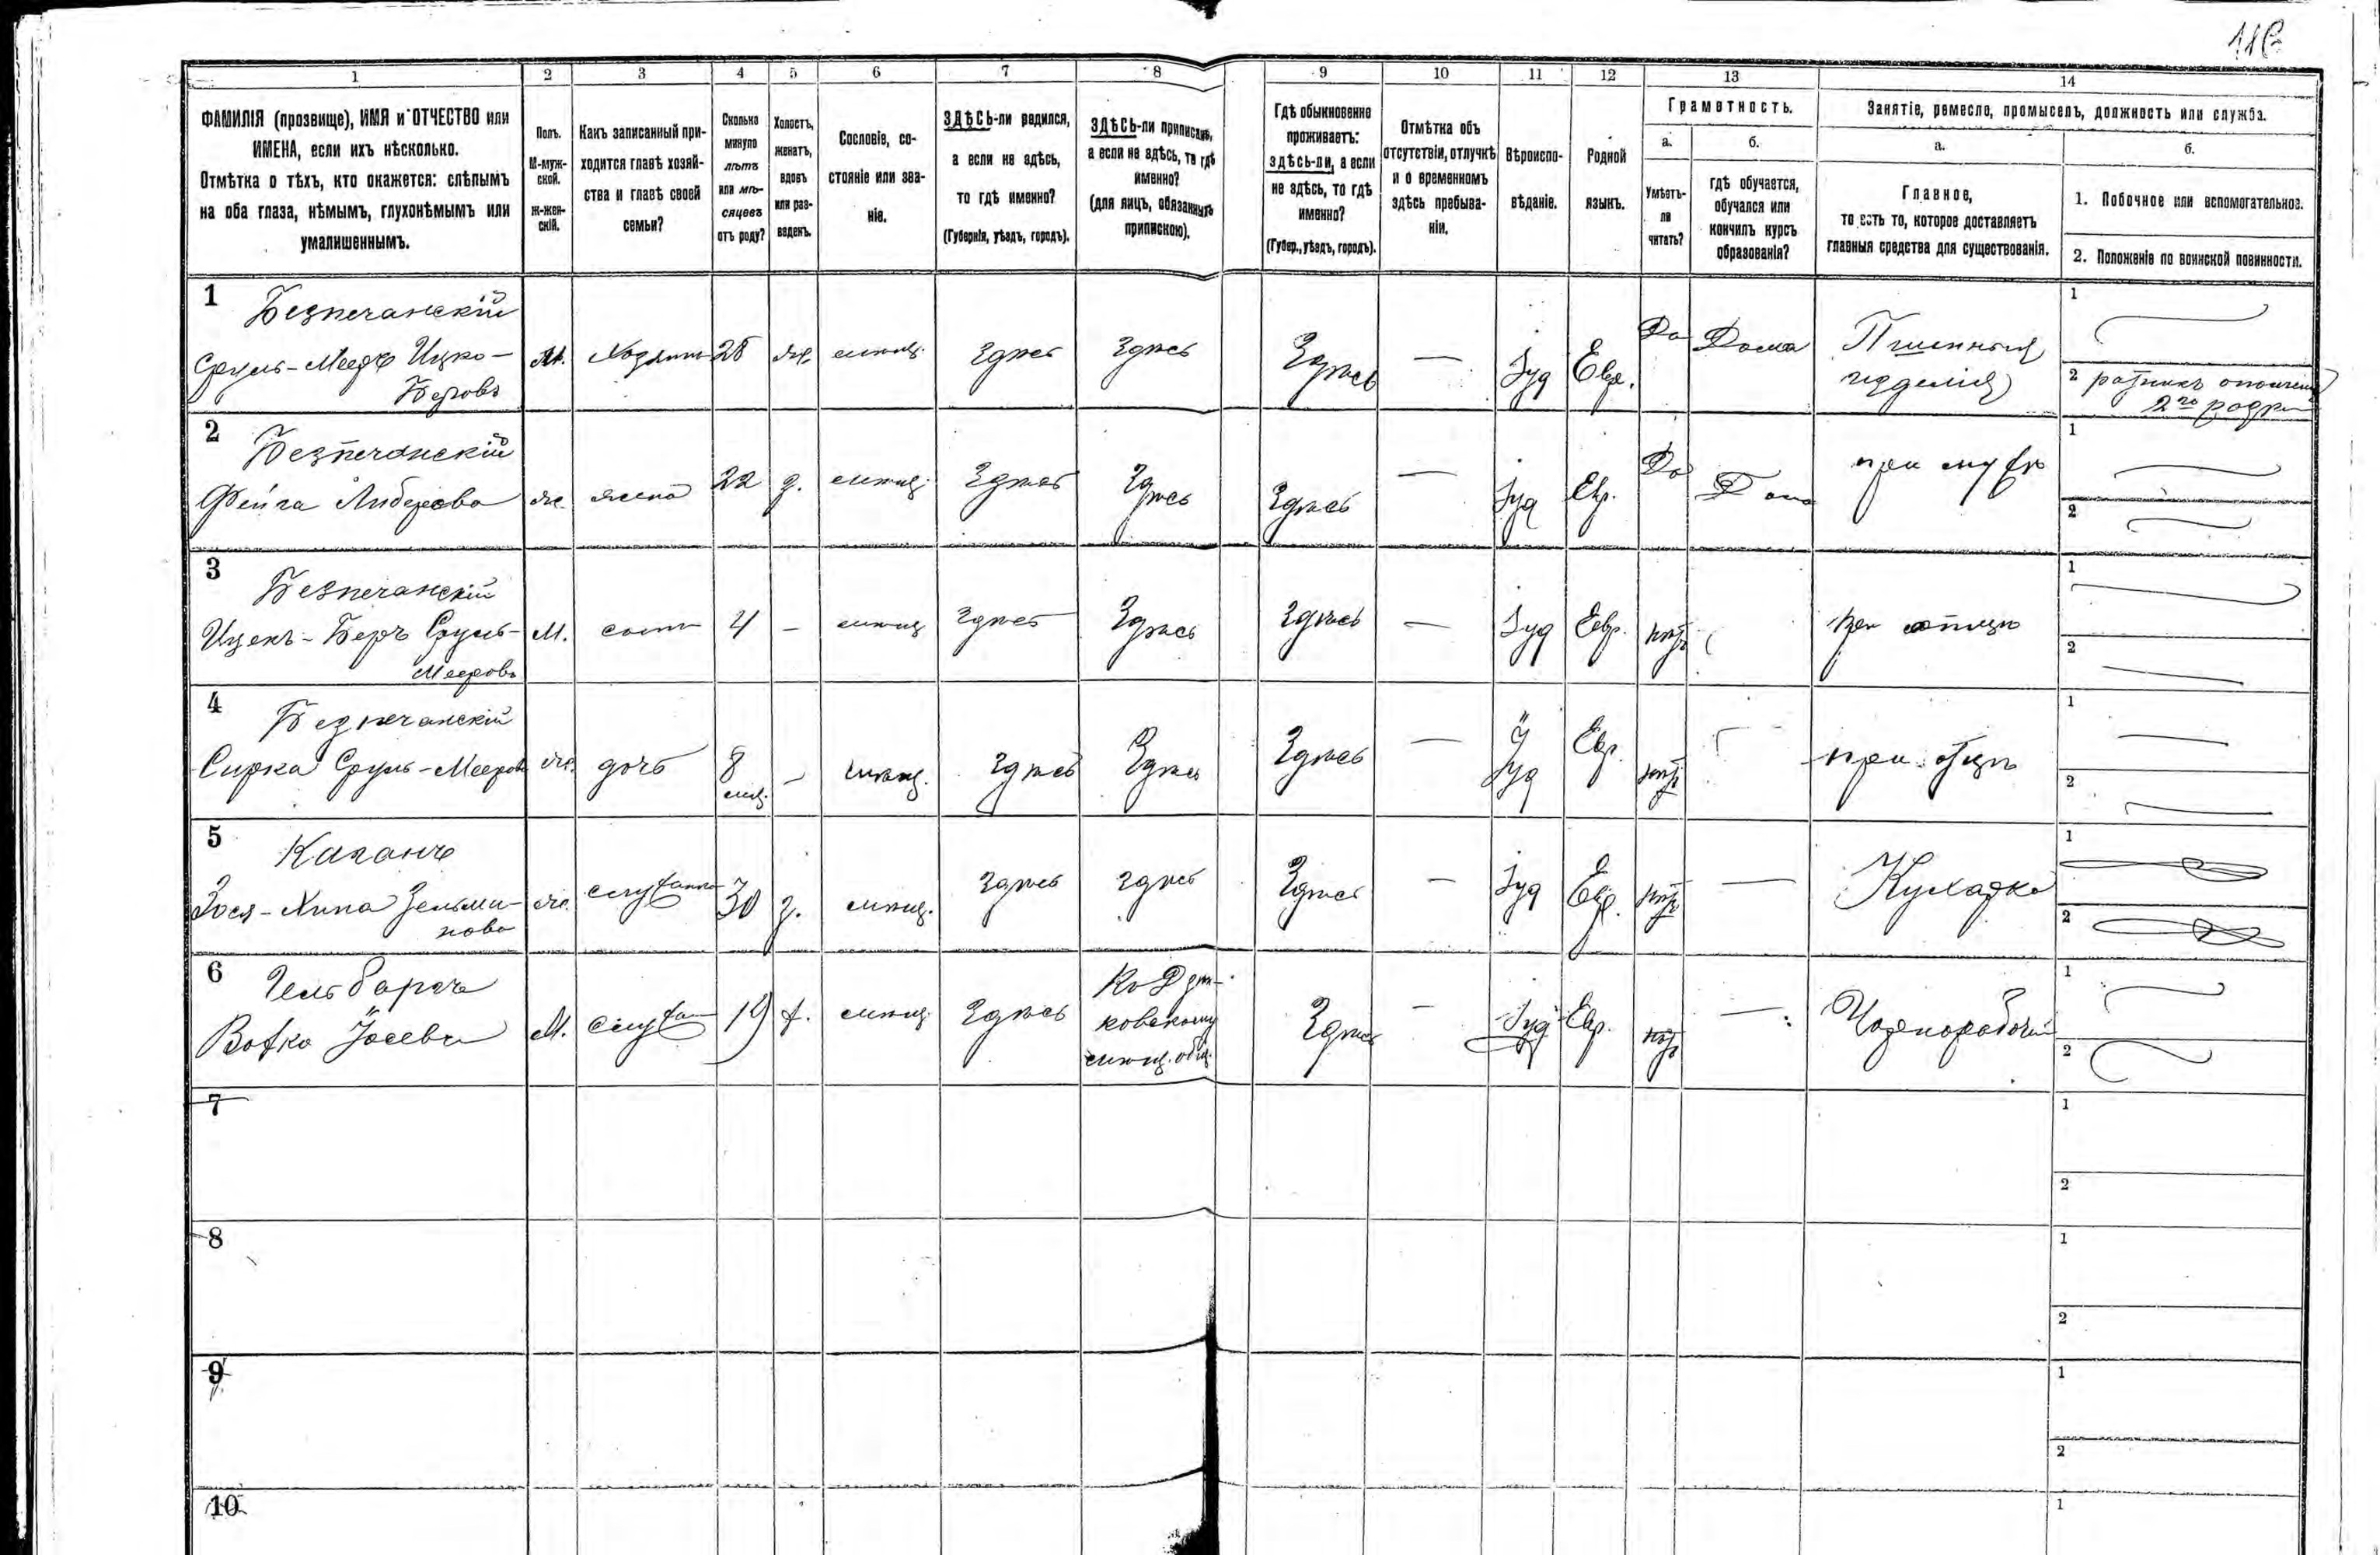 116
1 2 3 4 5 6 7 8 9 10 11 12 13 14
ФАМИЛІЯ (прозвище), ИМЯ и ОТЧЕСТВО или
ИМЕНА, если ихъ нѣсколько.
Отмѣтка о тѣхъ, кто окажется: слѣпымъ
на оба глаза, нѣмымъ, глухонѣмымъ или
умалишеннымъ.
Полъ.
М-муж-
ской.
Ж-жен-
скій.
Какъ записанный при-
ходится главѣ хозяй-
ства и главѣ своей
семьи?
Сколько
минуло
лѣтъ
или мѣ-
сяцевъ
отъ роду?
Холостъ,
женатъ,
вдовъ
или раз-
веденъ.
Сословіе, со-
стояніе или зва-
ніе.
ЗДѢСЬ-ли родился,
а если не здѣсь,
то гдѣ именно?
(Губернія, уѣздъ, городъ).
ЗДѢСЬ-ли приписанъ,
а если не здѣсь, то гдѣ
именно?
(для лицъ, обязанныхъ
припискою).
Гдѣ обыкновенно
проживаетъ:
здѣсь-ли, а если
не здѣсь, то гдѣ
именно?
(Губер., уѣздъ, городъ).
Отмѣтка объ
отсутствіи, отлучкѣ
и о временномъ
здѣсь пребыва-
ніи.
Вѣроиспо-
вѣданіе.
Родной
языкъ.
Грамотность.
а.
Умѣетъ-
ли
читать?
б.
гдѣ обучается,
обучался или
кончилъ курсъ
образованія?
Занятіе, ремесло, промыселъ, должность или служба.
а.
Главное,
то есть то, которое доставляетъ
главныя средства для существованія.
б.
1. Побочное или вспомогательное.
2. Положеніе по воинской повинности.
1 Безпечанскій
Сруль-Меер Ицко-
Беровъ
М. Хозяинъ 28 ж. мѣщ. Здѣсь Здѣсь Здѣсь — Іуд Евр. Да Дома Пшенныя
издѣлія
1
2 ратникъ ополчен
2го разря
2 Безпечанскій
Фейга Либерова ж. жена 22 з. мѣщ. Здѣсь Здѣсь Здѣсь — Іуд Евр. Да Дома при мужѣ
1
2
3 Безпечанскій
Ицекъ-Беръ Сруль-
Мееровъ
М. сынъ 4 — мѣщ Здѣсь Здѣсь Здѣсь — Іуд Евр. нѣтъ при отцѣ
1
2
4 Безпечанскій
Сирка Сруль-Мееров ж. дочь 8
мѣс. — мѣщ. Здѣсь Здѣсь Здѣсь — Іуд Евр. нѣтъ при отцѣ
1
2
5 Каганъ
Зося-Хипа Зельма-
нова
ж. служанка 30 з. мѣщ. Здѣсь Здѣсь Здѣсь — Іуд Евр. нѣтъ — Кухарка
1
2
6 Гельбарга
Вовко Іосевъ М. служ 19 х. мѣщ. Здѣсь
ковскому
мѣщ. общ.
Здѣсь — Іуд Евр. нѣтъ — Чорнорабочій
1
2
7
1
2
8
1
2
9
1
2
10
1